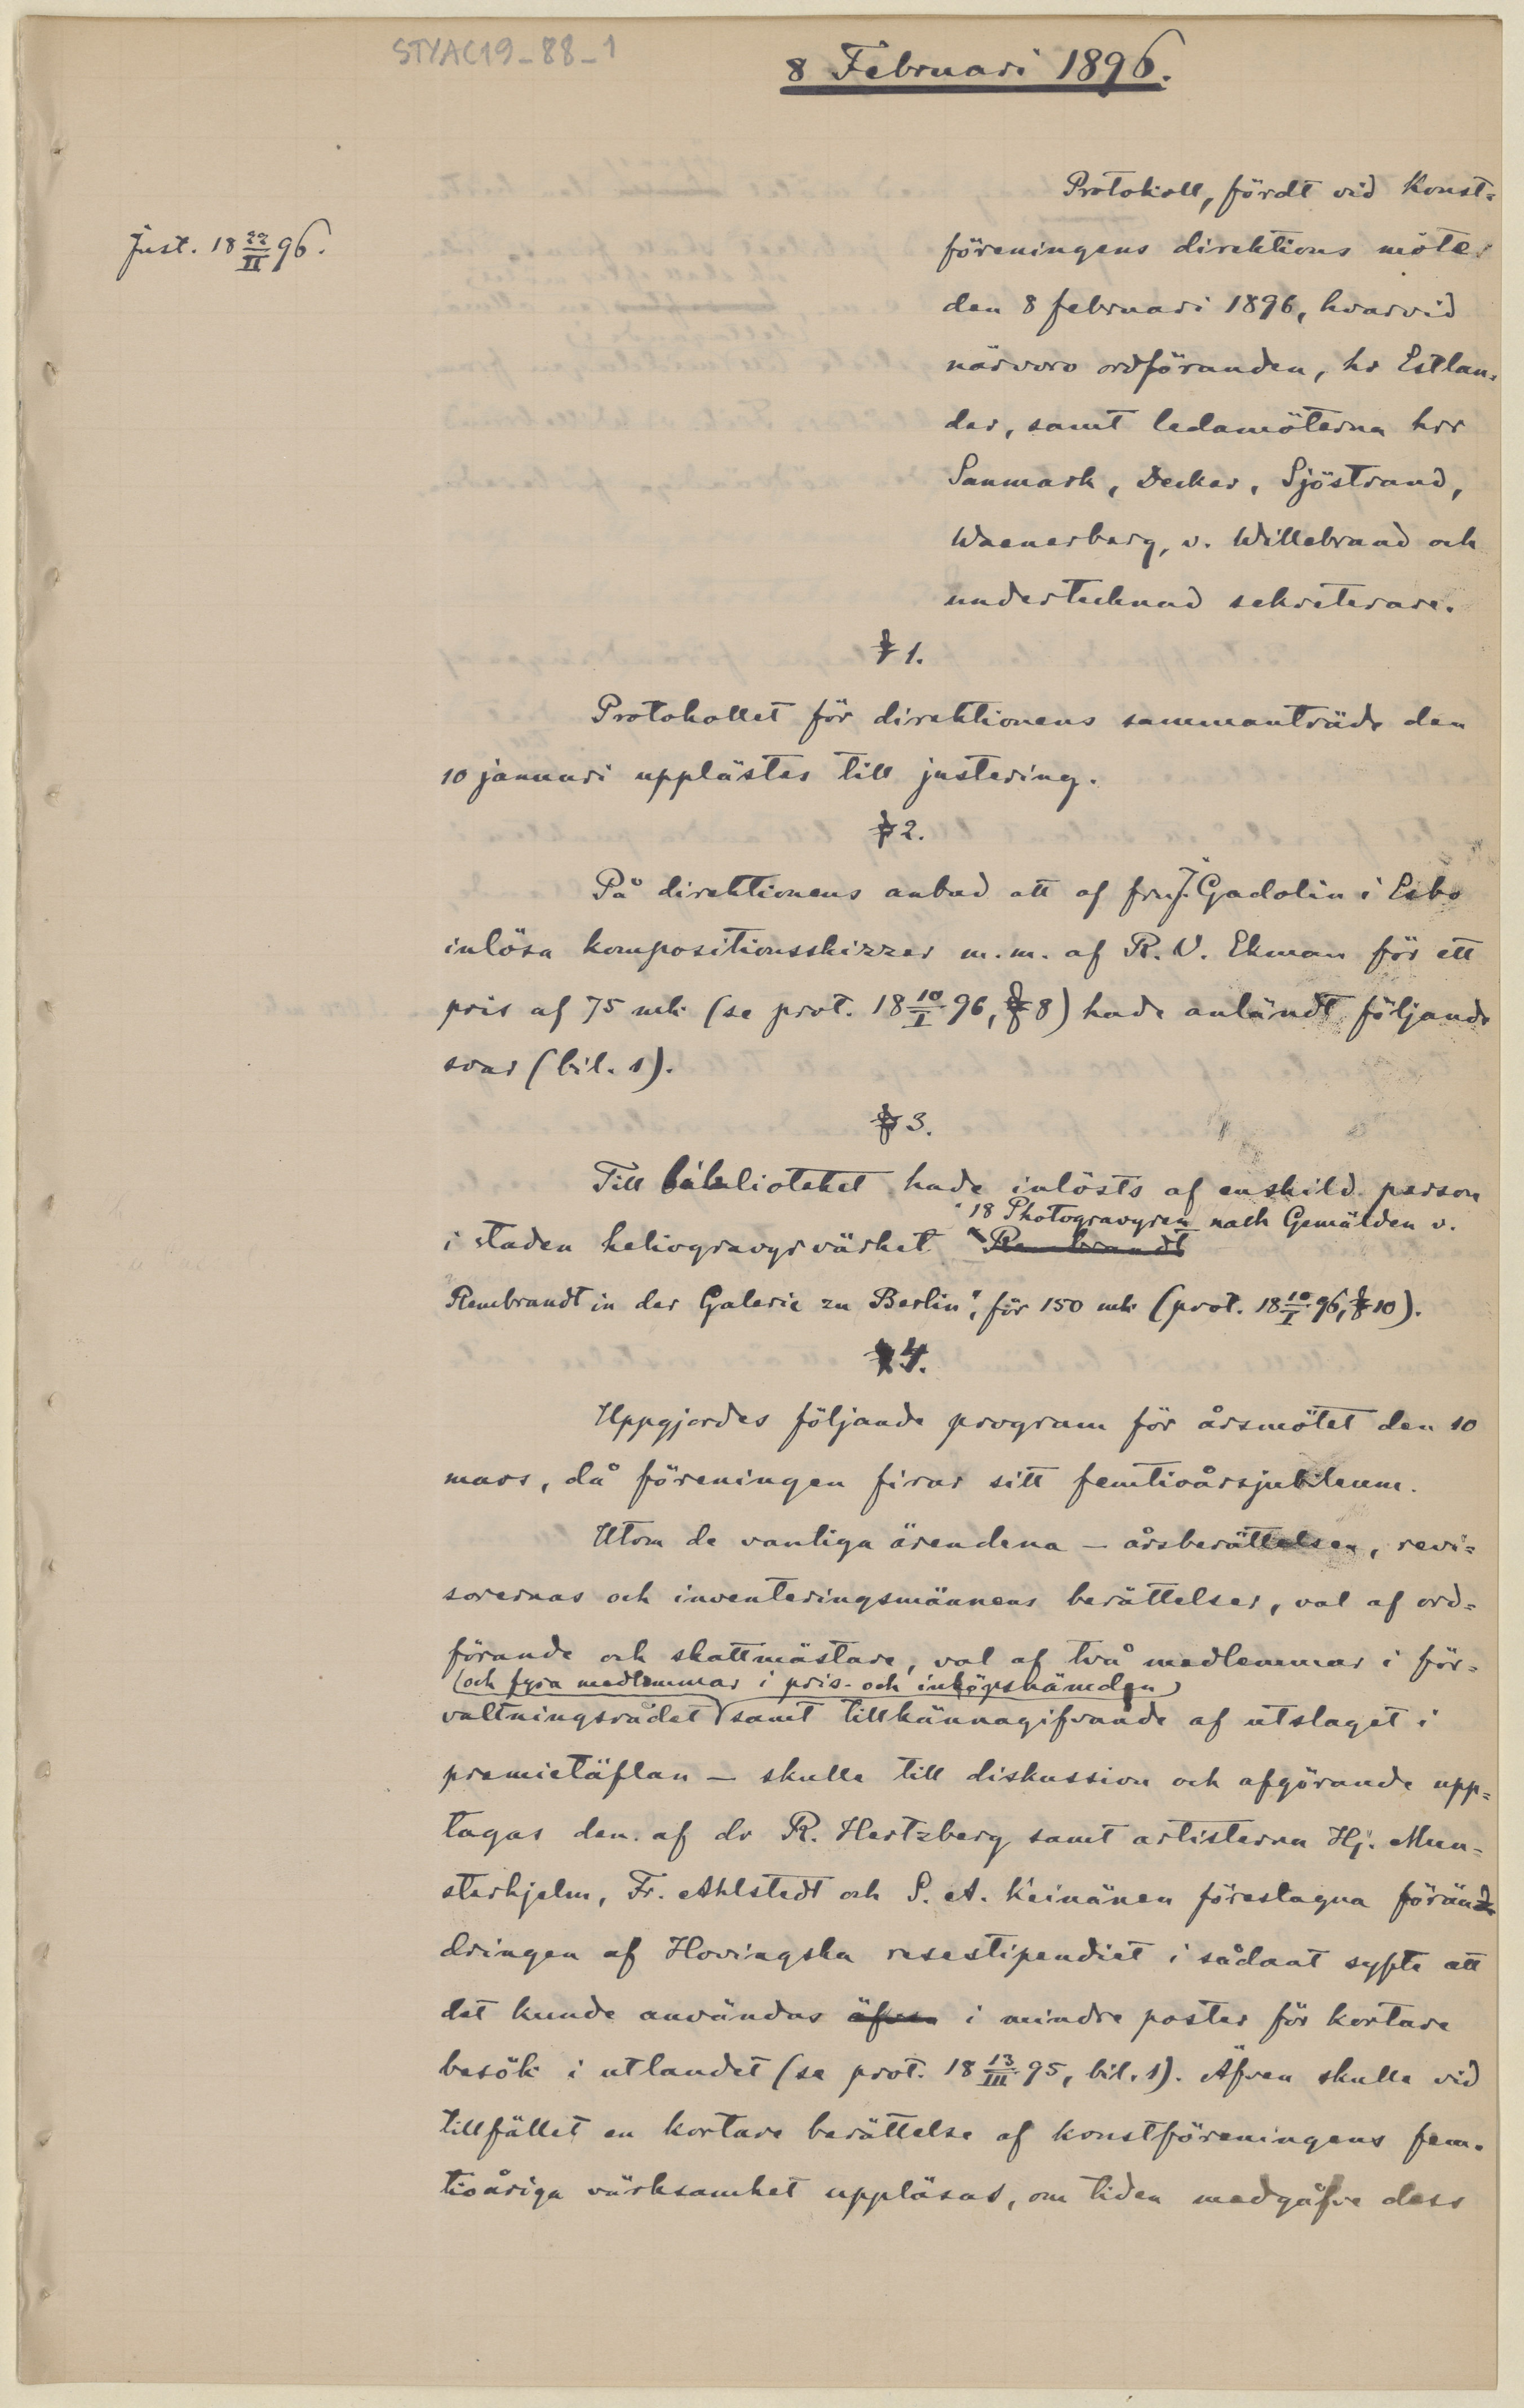 STYAC19-88-1
8 Februari 1896.
Just. 18 22/II 96.
Protokoll, fördt vid Konst=
föreningens direktions möte
den 8 februari 1896, hvarvid
närvoro ordföranden, hr Estlan=
der, samt ledamöterna hrr
Sanmark, Decker, Sjöstrand,
Waenerberg, v. Willebrand och
undertecknad sekreterare.
§ 1.
Protokollet för direktionens sammanträde den
10 januari upplästes till justering.
§ 2.
På direktionens anbud att af fru J. Gadolin i Esbo
inlösa kompositionsskizzer m.m. af R. V. Ekman för ett
pris af 75 mk (se prot. 18 10/I 96, § 8) hade anländt följande
svar (bil. 1).
§ 3.
Till biblioteket hade inlösts af enskild person
"18 Photogravyren nach Gemälden v.
i staden heliogravyrvärket Rembrandt
Rembrandt in der Galerie zu Berlin", för 150 mk (prot. 18 10/I 96, § 10).
§ 4.
Uppgjordes följande program för årsmötet den 10
mars, då föreningen firar sitt femtioårsjubileum.
Utom de vanliga ärendena – årsberättelsen, revi=
sorernas och inventeringsmännens berättelser, val af ord=
förande och skattmästare, val af två medlemmar i för=
(och fyra medlemmar i pris- och inköpsnämden)
valtningsrådet samt tillkännagifvande af utslaget i
premietäflan – skulle till diskussion och afgörande upp=
tagas den af dr R. Hertzberg samt artisterna Hj. Mun=
sterhjelm, Fr. Ahlstedt och S. A. Keinänen föreslagna förän
dringen af Hovingska resestipendiet i sådant syfte att
det kunde användas äfven i mindre poster för kortare
besök i utlandet (se prot. 18 13/III 95, bil. 1). Äfven skulle vid
tillfället en kortare berättelse af konstföreningens fem=
tioåriga värksamhet uppläsas, om tiden medgåfve dess